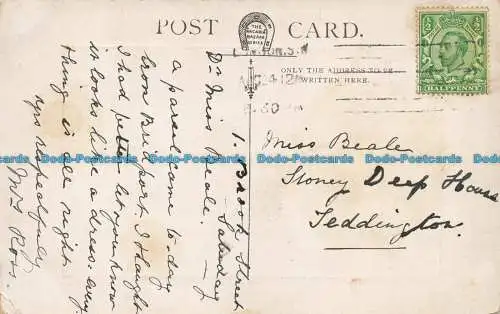 POST CARD.
THE
ARCADE
BAZAAR
SERIES
ONLY THE ADDRESS TO BE
WRITTEN HERE.
HALFPENNY
4 12
30
1. Brook Street
Saturday
Dr Miss Beale.
a parcel come to day
from Bridport. I thought
I had better let you know
it looks like a dress. every
thing is all right
yrs respectfully
Mrs Ross.
Miss Beale
Stoney Deep House
Teddington.
Bobs-Postcards Bobs-Postcards Bobs-Postcards Bobs-Postcards
Bobs-Postcards Bobs-Postcards Bobs-Postcards Bobs-Postcards